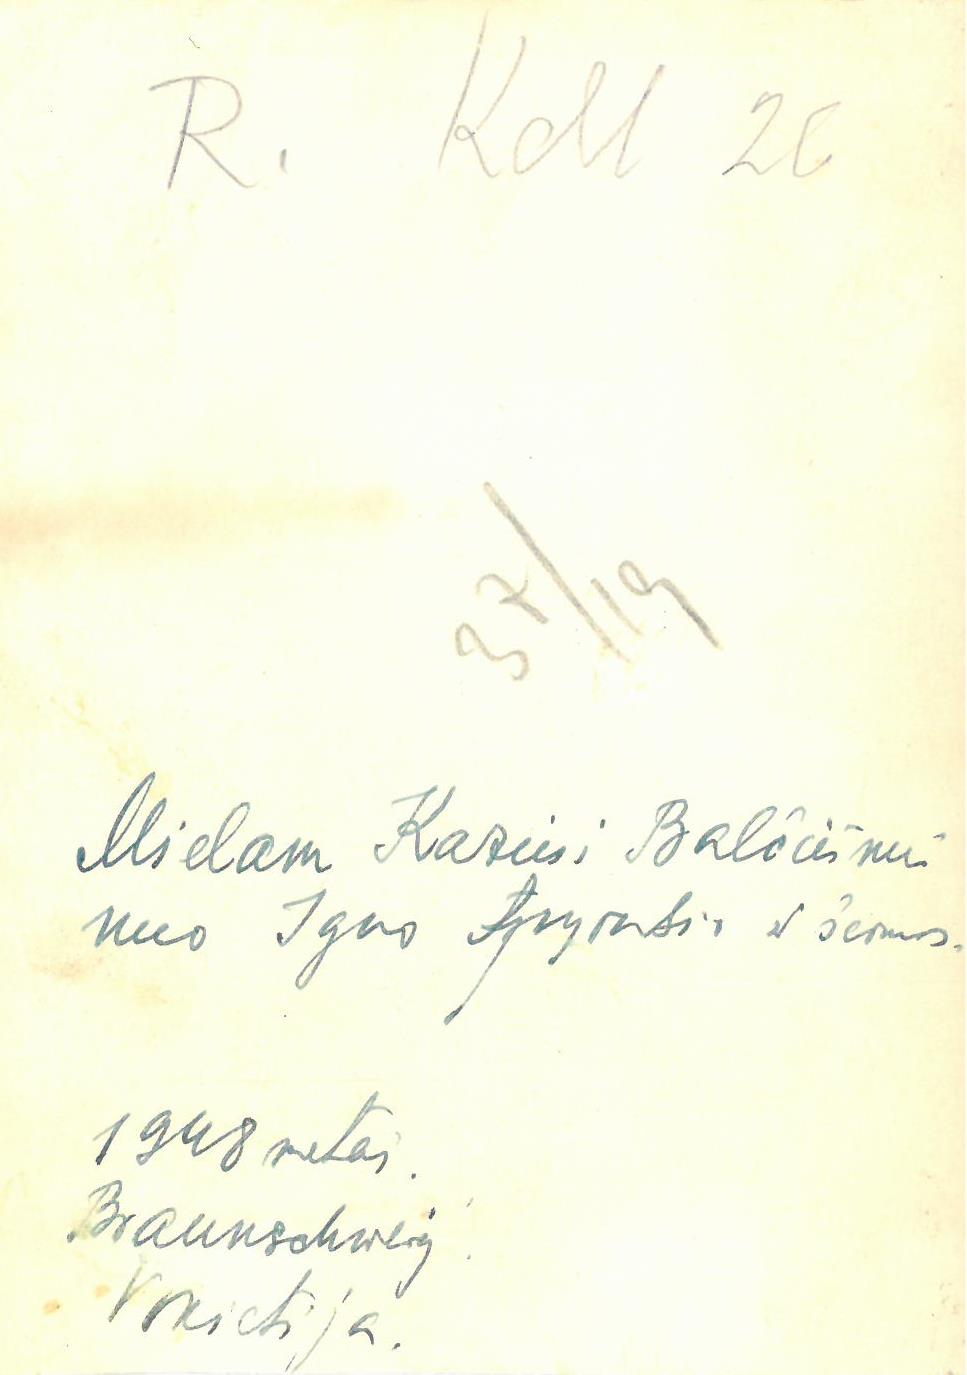 R. Koll 26
37/19
Mielam Kaziui Balčiūnui
nuo Igno ir šeimos.
1948 metai.
Braunschweig
Vokietija.